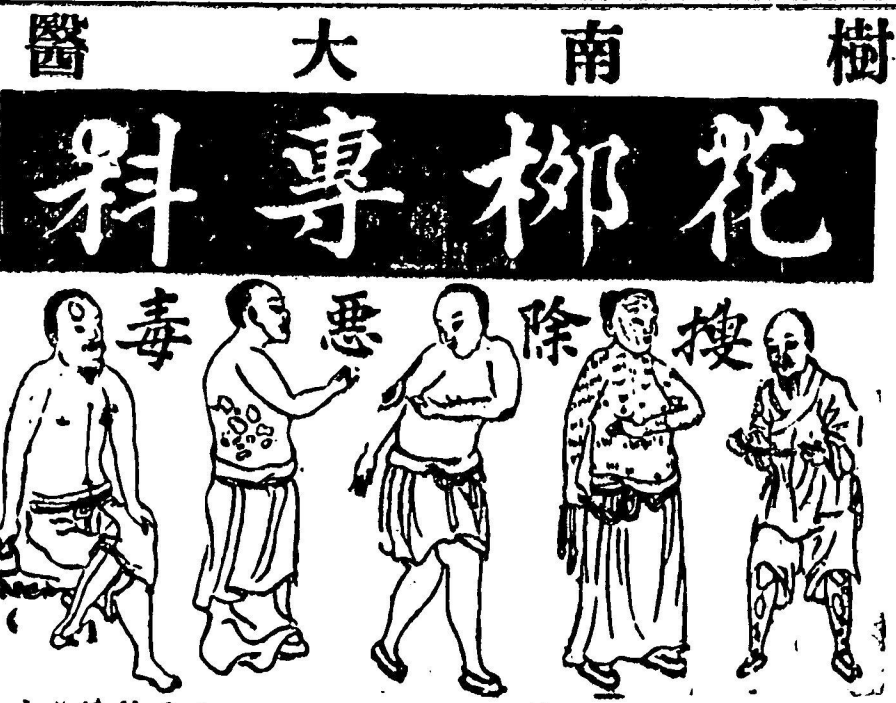 樹南大醫
花柳專科
搜除惡毒